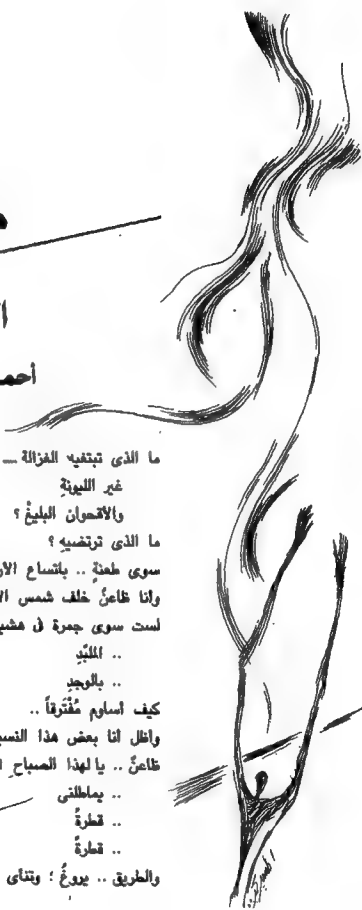 أحمـ
ما الذى تبتغيه الغزالة ــ
غير الليونةِ
والأقحوان البليغْ ؟
ما الذى ترتضيهِ ؟
سوى طعنةٍ .. باتساع الأر
وأنا ظاعنٌ خلف شمس الأ
لست سوى جمرة فى هشيـ
.. الملبّدِ
.. بالوجدِ
كيف أساوم مُفْترقاً ..
وأظل أنا بعض هذا النسيـ
ظاعنٌ .. يا لهذا الصباحِ ا
.. يماطلنى
.. قطرةً
.. قطرةً
والطريق .. يروغُ ؛ وتنأى